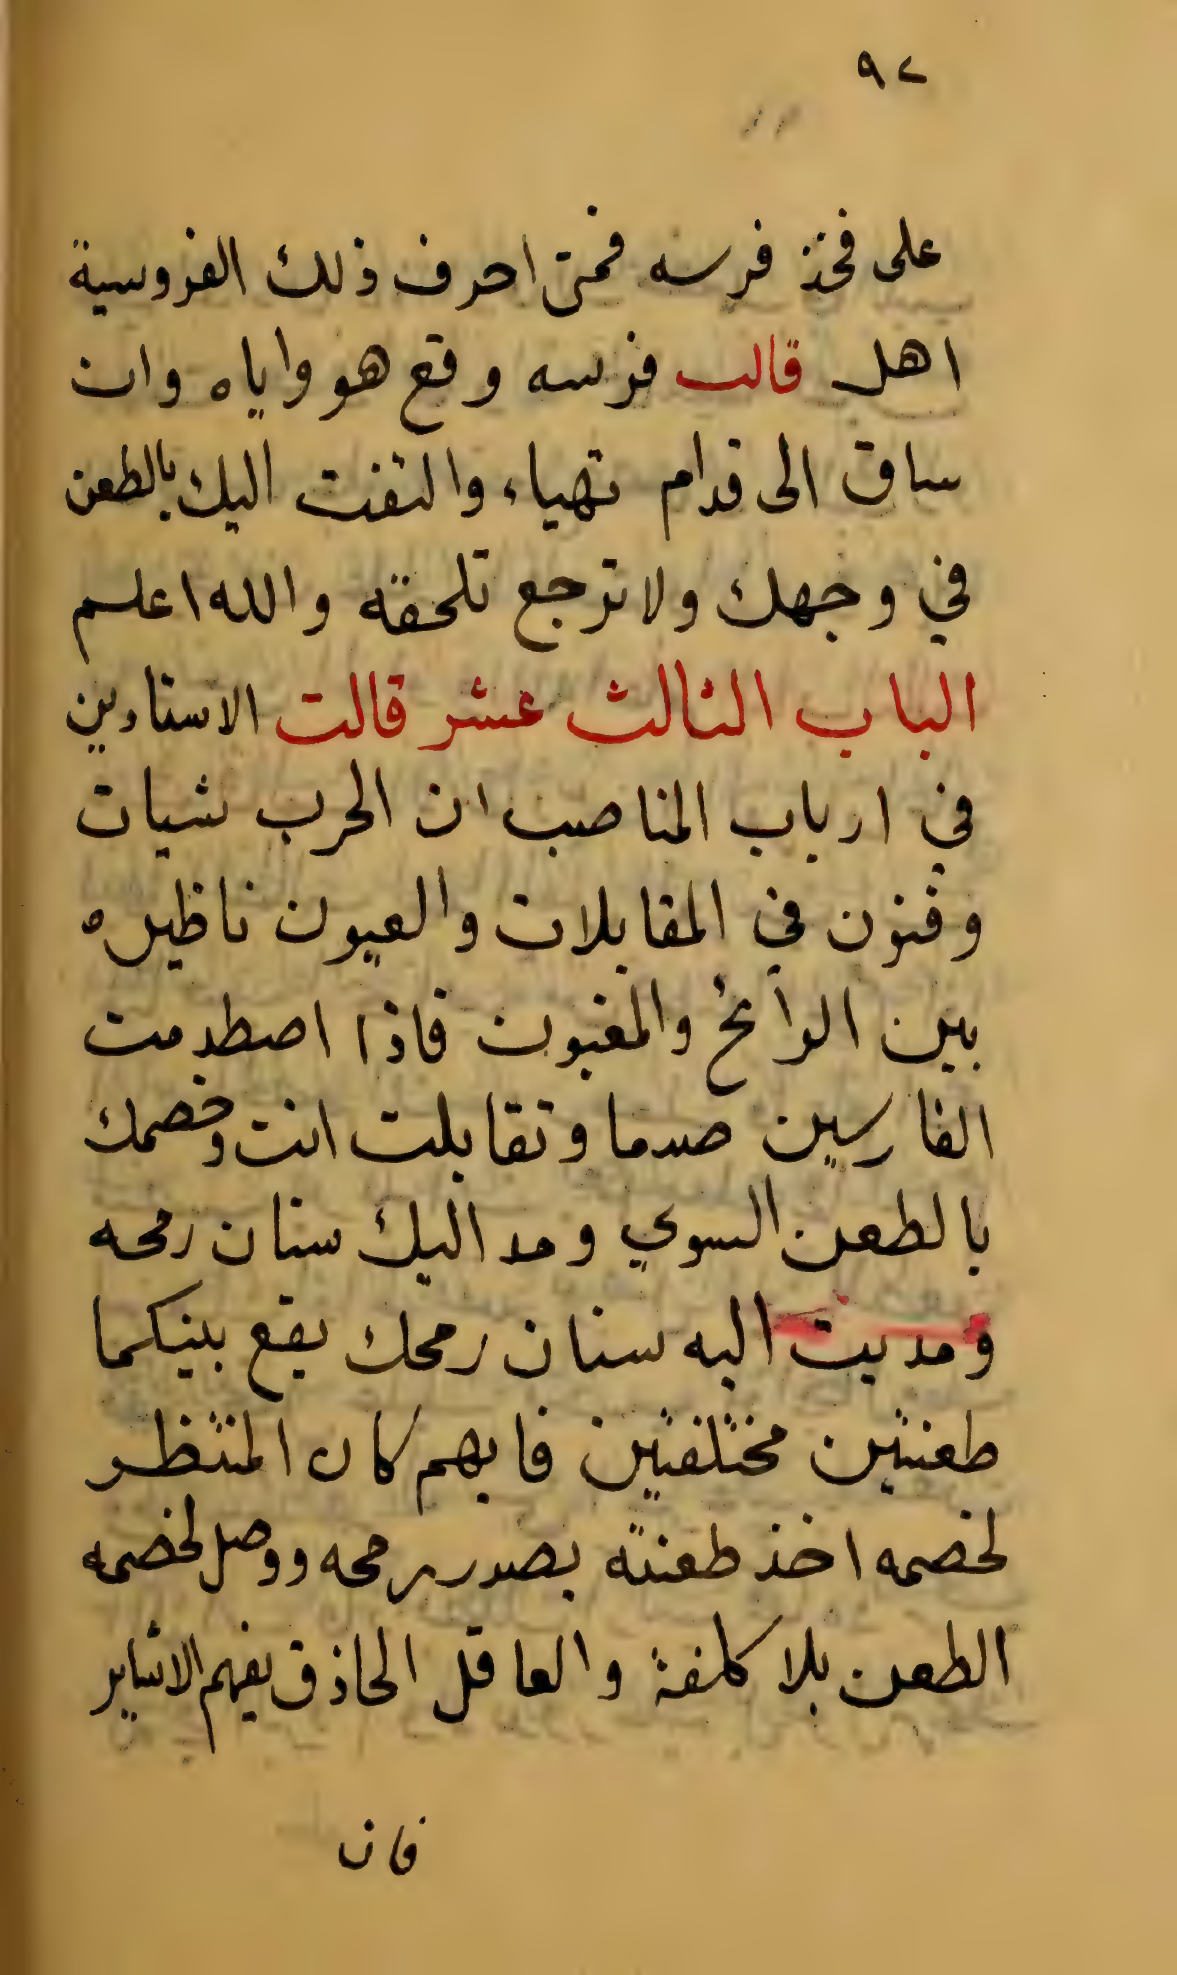 ٩٢
على فخذ فرسه فمتى احرف ذلك الفروسية
اهل قالب فرسه وقع هو واياه وان
ساق الى قدام تهياء والتفت اليك بالطعن
في وجهك ولا ترجع تلحقه والله اعلم
الباب الثالث عشر قالت الاستادين
في ارباب المناصب ان الحرب شيات
وفنون في المقابلات والعيون ناظيره
بين الرائح والمغبون فاذا اصطدمت
الفارسين صدما وتقابلت انت وخصمك
بالطعن السوي ومد اليك سنان رمحه
ومديت اليه سنان رمحك يقع بينكما
طعنتين مختلفتين فايهم كان المنتظر
لخصمه اخذ طعنته بصدر رمحه ووصل لخصمه
الطعن بلا كلفة والعاقل الحاذق يفهم الاشاير
فان